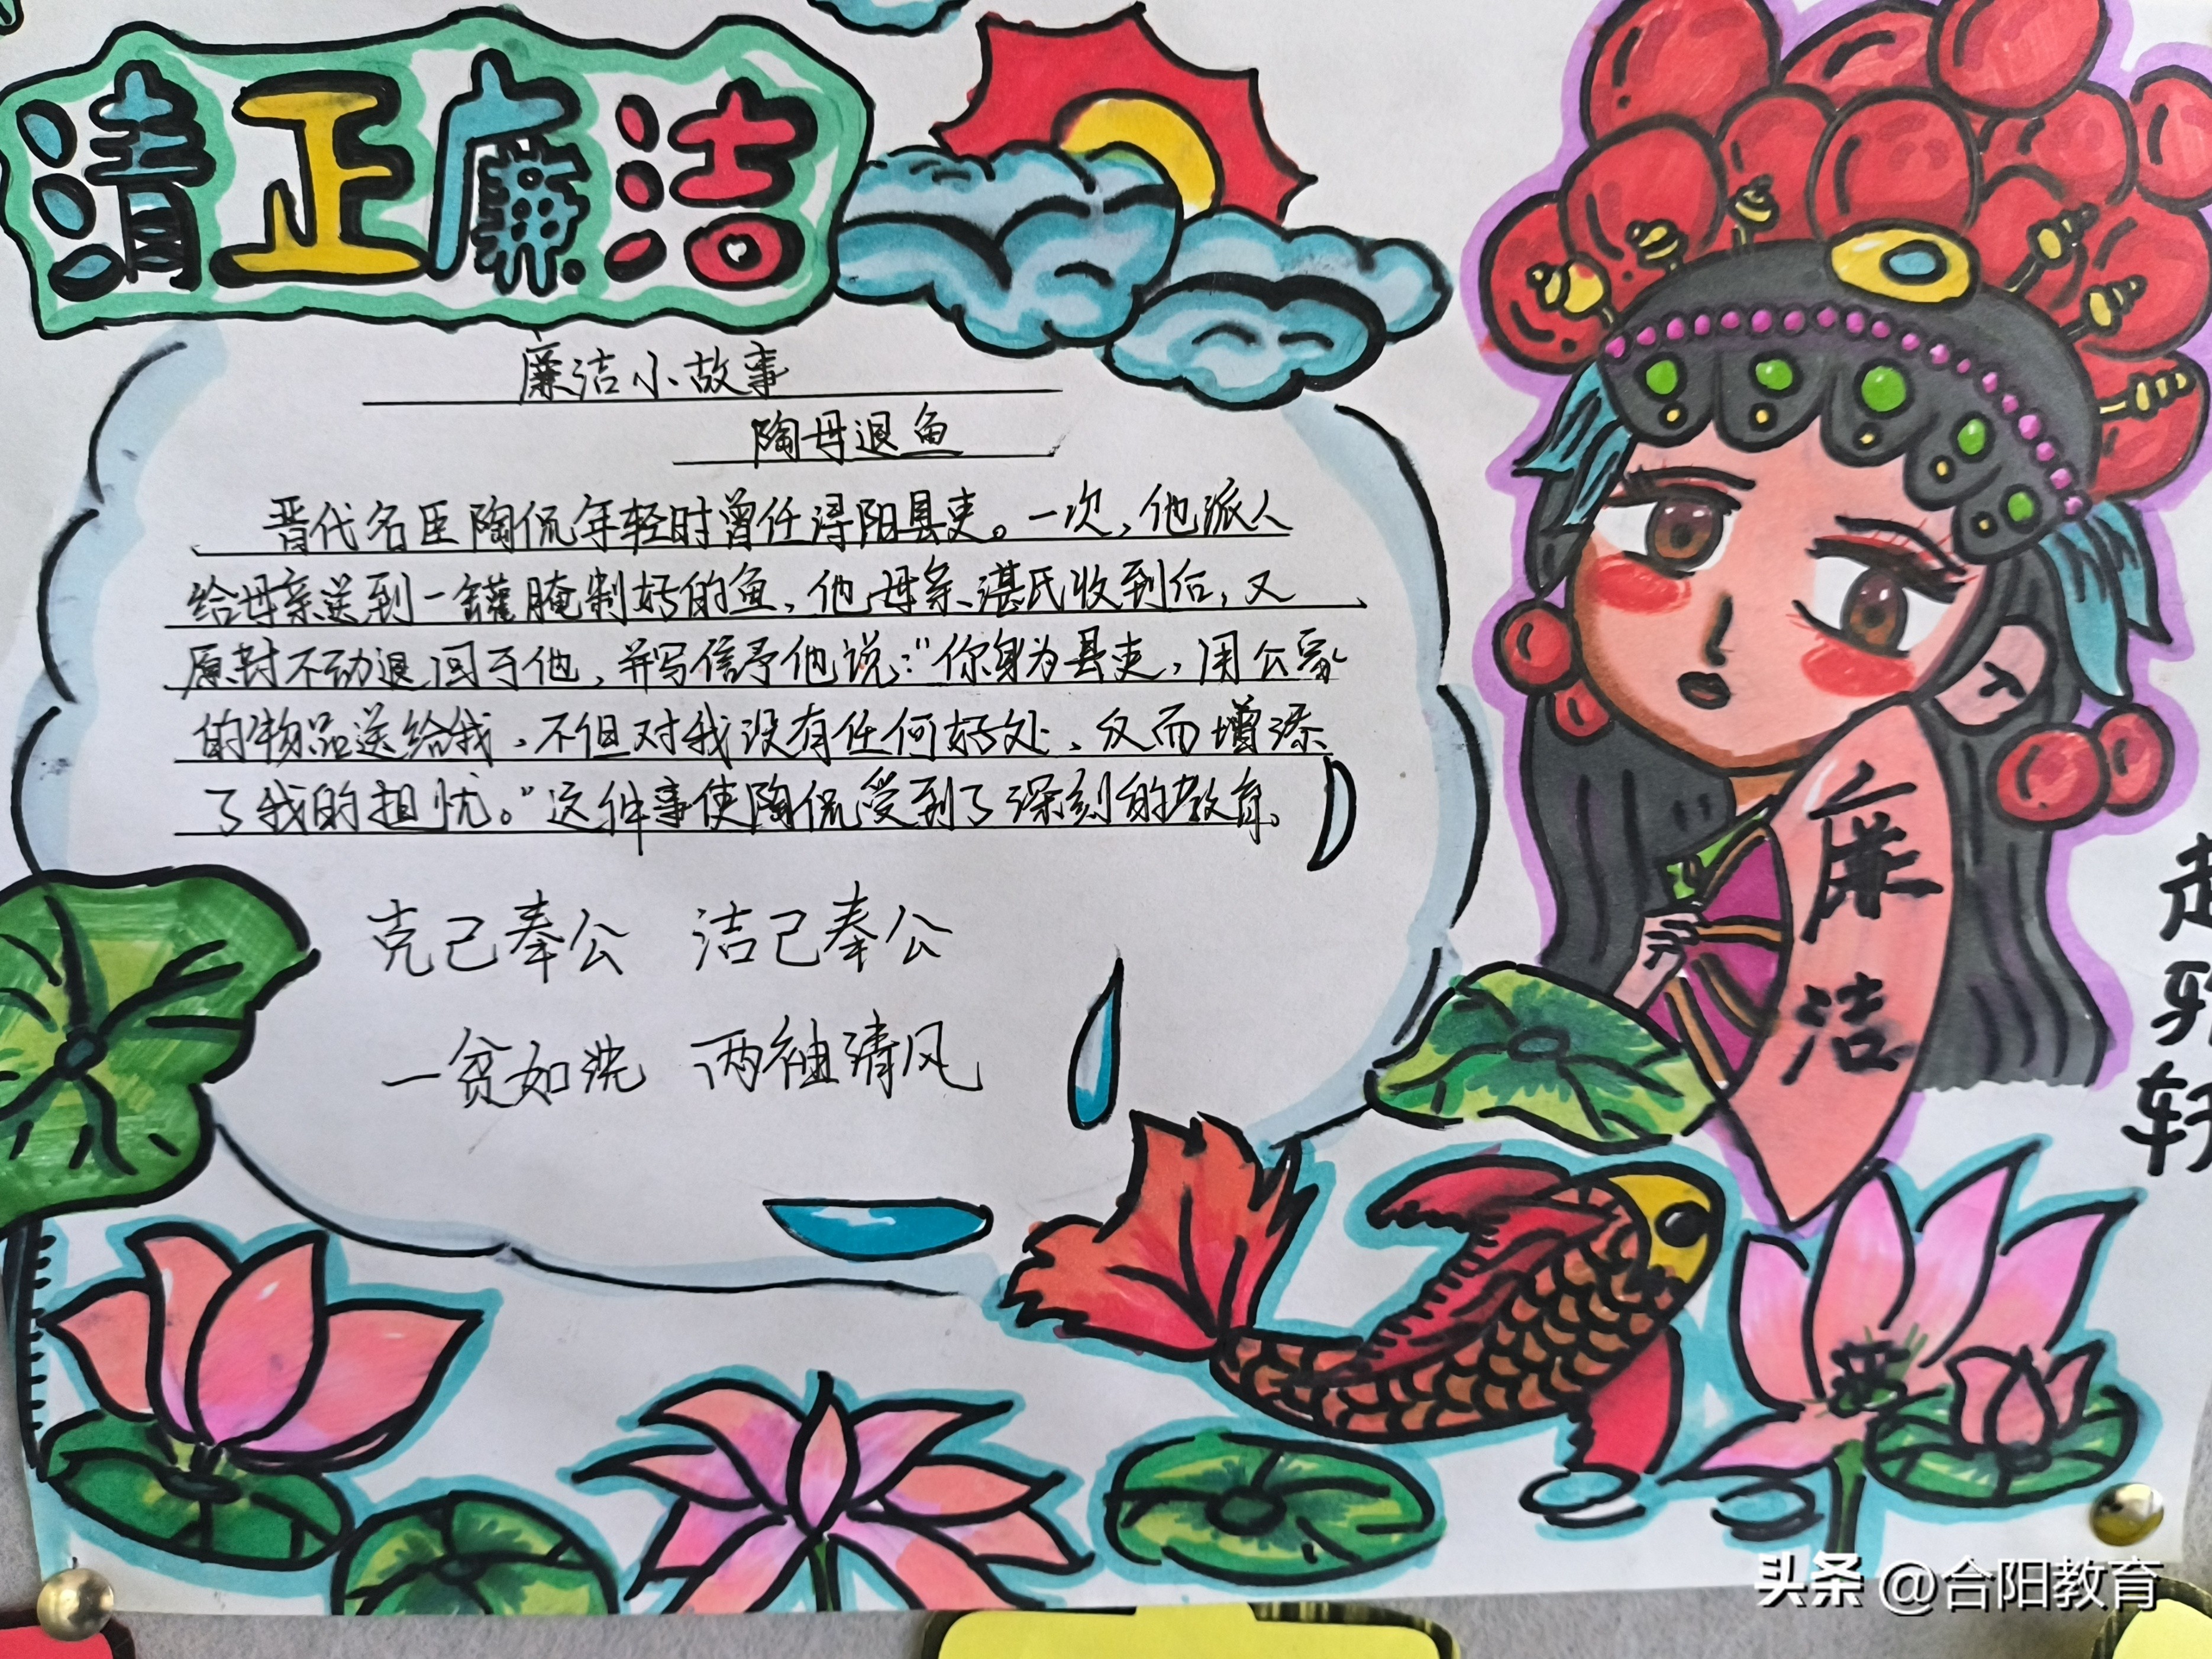 清正廉洁
廉洁小故事
陶母退鱼
晋代名臣陶侃年轻时曾任浔阳县吏。一次，他派人
给母亲送到一罐腌制好的鱼，他母亲湛氏收到后，又
原封不动退回于他，并写信予他说：“你身为县吏，用公家
的物品送给我，不但对我没有任何好处，反而增添
了我的担忧。”这件事使陶侃受到了深刻的教育。
克己奉公 洁己奉公
一贫如洗 两袖清风
廉洁
头条 @合阳教育